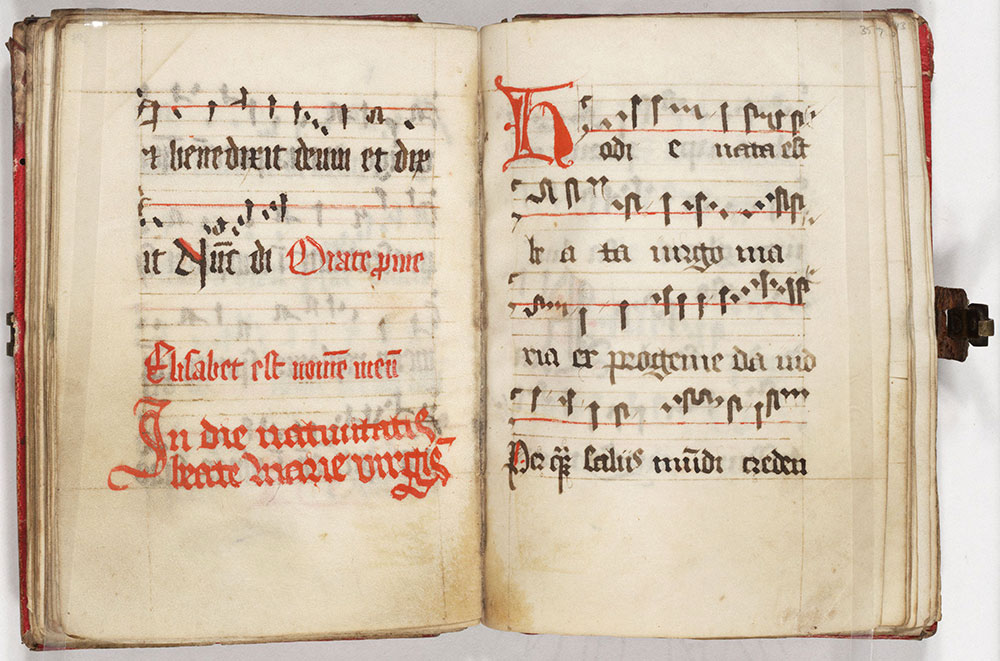 et benedixit deum et dix
it Nūc di Orate p me
Elisabet est nomē meū
In die natiuitatis
beate marie virgīs
Hodi e nata est
be a ta uirgo ma
ria ex progenie da uid
Per quā salus mūdi creden